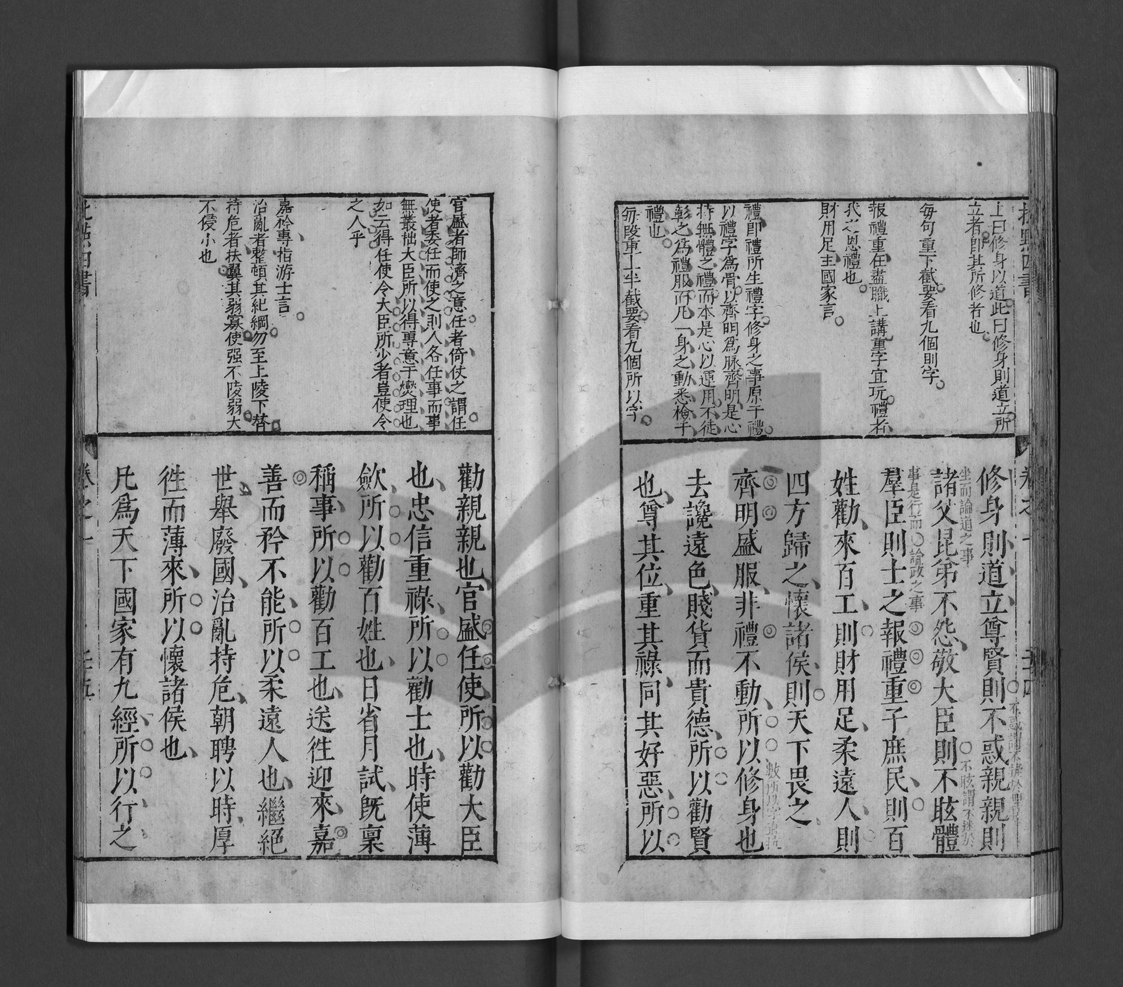 上曰修身以道此曰修身則道立所
立者即其所修者也
每句重下截要看九個則字
報禮重任盡職上講重字宜玩禮者
我之恩禮也
財用足主國家言
禮即禮所生禮字修身之事原于禮
以禮字為骨以齊明為脉齊明是心
持無體之禮而本是心以運用不徒
彰之為禮服而凡一身之動悉檢于
禮也
每段重上半截要看九個所以字
修身則道立尊賢則不惑親親則
諸父昆弟不怨敬大臣則不眩體
坐而論道之事
羣臣則士之報禮重子庶民則百
姓勸來百工則財用足柔遠人則
四方歸之懷諸侯則天下畏之
齊明盛服非禮不動所以修身也
去讒遠色賤貨而貴德所以勸賢
也尊其位重其祿同其好惡所以
官盛者師濟之意任者倚仗之謂任
使者委任而使之則人各任事而事
無叢脞大臣所以得專意于燮理也
如云得任使令大臣所少者豈使令
之人乎
嘉矜專指游士言
治亂者整頓其紀綱勿至上陵下替
持危者扶翼其弱寡使强不陵弱大
不侵小也
勸親親也官盛任使所以勸大臣
也忠信重祿所以勸士也時使薄
歛所以勸百姓也日省月試旣稟
稱事所以勸百工也送徃迎來嘉
善而矜不能所以柔遠人也繼絕
世舉廢國治亂持危朝聘以時厚
徃而薄來所以懷諸侯也
凡為天下國家有九經所以行之